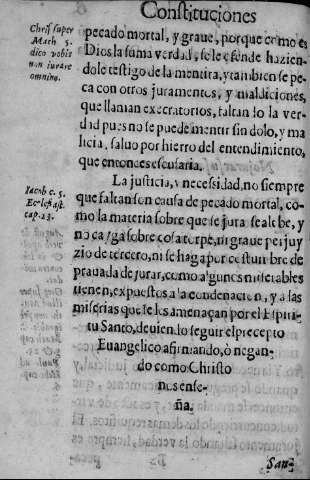 Constituciones
Chrisº super
Math 5.
dico vobis
non iurare
omnino.
pecado mortal, y graue, porque como es
Dios la suma verdad, se le ofende hazien-
dole testigo de la mentira, y tambien se pe-
ca con otros juramentos, y maldiciones,
que llaman execratorios, faltando la ver-
dad pues no se puede mentir sin dolo, y ma
licia, saluo por hierro del entendimiento,
que entonces escusaria.
Iacob c. 5.
Ecclesiast.
cap. 23.
La justicia, y necesidad, no siempre
que faltan son causa de pecado mortal, co-
mo la materia sobre que se jura sea lebe, y
no caiga sobre cosa torpe, ni graue perjuy
zio de tercero, ni se haga por costumbre de
prauada de jurar, como algunos miserables
tienen, expuestos a la condenacion, y a las
miserias que les amenaçan por el Espiri-
tu Santo, deuiendo seguir el precepto
Euangelico afirmando, ò negan-
do como Christo
nos ense-
ña.
San-